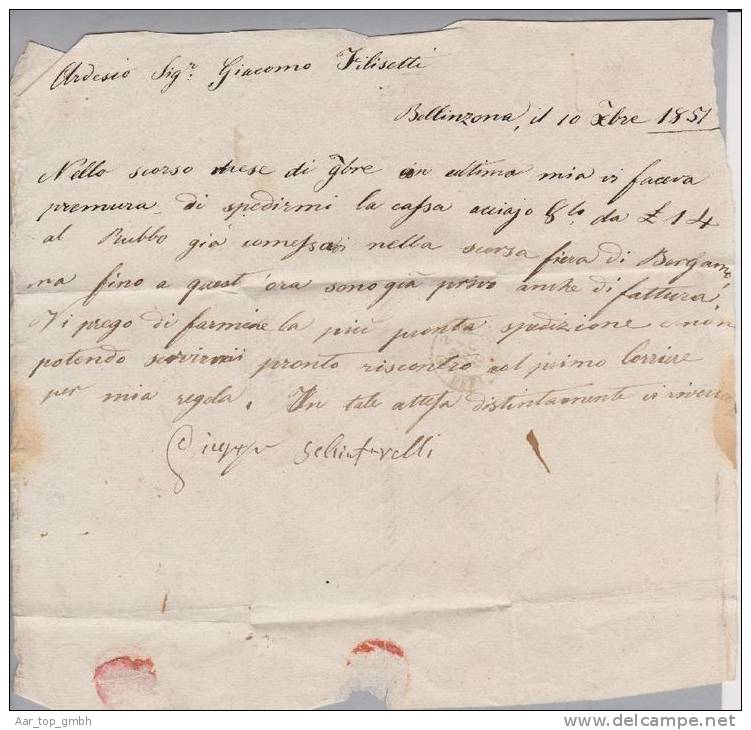 Ardesio Sig.r Giacomo Filisetti
Bellinzona, il 10 Xbre 1851
Nello scorso mese di 9bre in ultima mia vi faceva
premura di spedirmi la cassa acciajo 8lo da £ 14
al Rubbo già comessavi nella scorsa fiera di Bergamo,
ma fino a quest'ora sono già privo anche di fattura.
Vi prego di farmene la più pronta spedizione e non
potendo servirmi pronto riscontro col primo Corriere
per mia regola. In tale attesa distintamente vi riverisco
Giuseppe
Aar_top_gmbh
www.delcampe.net